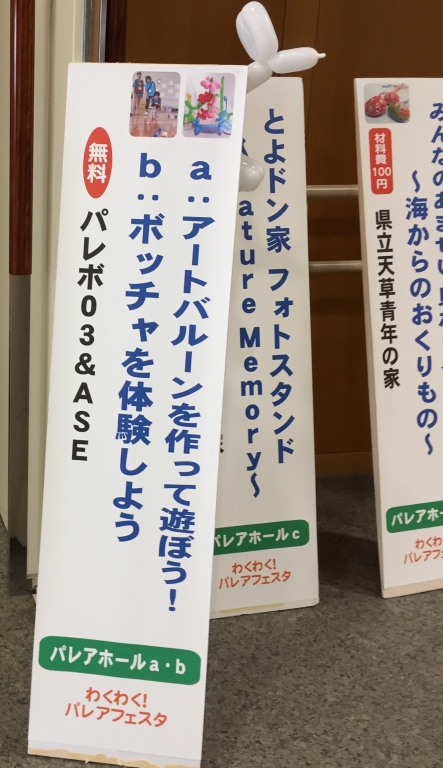 a：アートバルーンを作って遊ぼう！
b：ボッチャを体験しよう
無料
パレボ03&ASE
パレアホールa・b
わくわく！
パレアフェスタ
とよドン家 フォトスタンド
ature Memory～
パレアホールc
わくわく！
パレアフェスタ
～海からのおくりもの～
材料費
100円
県立天草青年の家
パレアホー
わくわく
パレアフェ